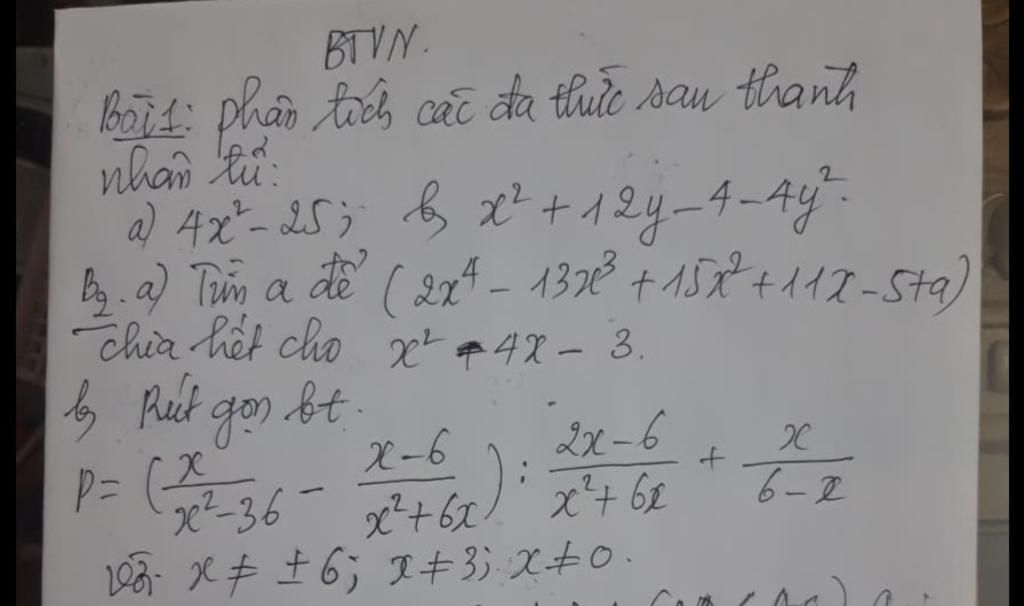 BTVN.
Bài 1: phân tích các đa thức sau thành
nhân tử:
a) 4x² - 25; b) x² + 12y - 4 - 4y².
B2. a) Tìm a để (2x⁴ - 13x³ + 15x² + 11x - 5 + a)
chia hết cho x² - 4x - 3.
b) Rút gọn bt.
P = (x/(x² - 36) - (x - 6)/(x² + 6x)) : (2x - 6)/(x² + 6x) + x/(6 - x)
với x ≠ ± 6; x ≠ 3; x ≠ 0.